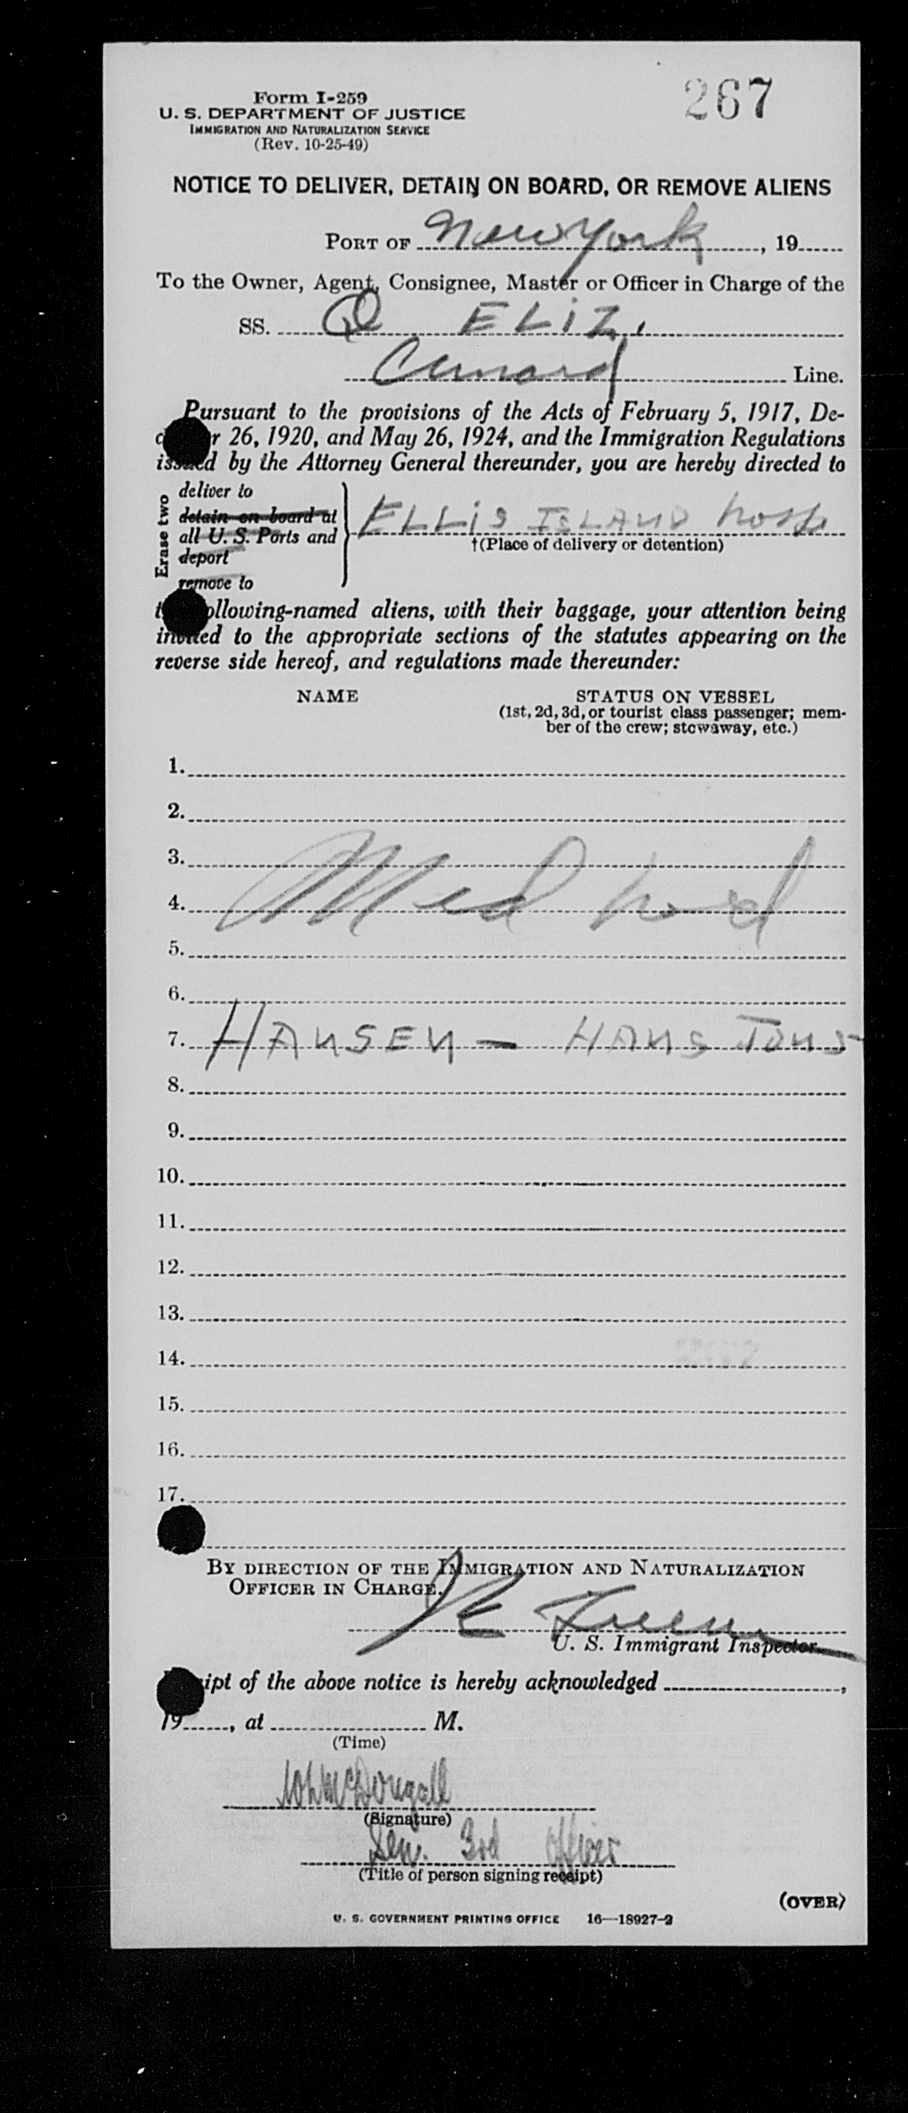 267
Form I-259
U. S. DEPARTMENT OF JUSTICE
IMMIGRATION AND NATURALIZATION SERVICE
(Rev. 10-25-49)
NOTICE TO DELIVER, DETAIN ON BOARD, OR REMOVE ALIENS
PORT OF New York, 19
To the Owner, Agent, Consignee, Master or Officer in Charge of the
SS. Q ELIZ.
Cunard Line.
Pursuant to the provisions of the Acts of February 5, 1917, De-
r 26, 1920, and May 26, 1924, and the Immigration Regulations
issued by the Attorney General thereunder, you are hereby directed to
Erase two
deliver to
detain on board at
all U. S. Ports and
deport
remove to
ELLIS ISLAND hosp
†(Place of delivery or detention)
following-named aliens, with their baggage, your attention being
invited to the appropriate sections of the statutes appearing on the
reverse side hereof, and regulations made thereunder:
NAME STATUS ON VESSEL
(1st, 2d, 3d, or tourist class passenger; mem-
ber of the crew; stowaway, etc.)
1.
2.
3.
4. Med
5.
6.
7. HANSEN - HANS
8.
9.
10.
11.
12.
13.
14.
15.
16.
17.
BY DIRECTION OF THE IMMIGRATION AND NATURALIZATION
OFFICER IN CHARGE.
U. S. Immigrant Inspector.
Receipt of the above notice is hereby acknowledged ,
19 , at M.
(Time)
McDougall
(Signature)
Sen. 3rd Officer
(Title of person signing receipt)
(OVER)
U. S. GOVERNMENT PRINTING OFFICE 16—18927-2